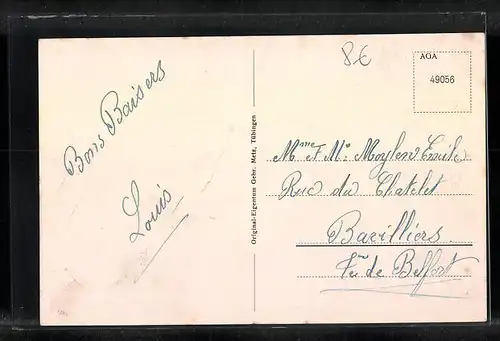 Bons Baisers
Louis
Original-Eigentum Gebr. Metz, Tübingen
8€
AGA
49056
Mme et Mr Moylen Emile
Rue du Chatelet
Bavilliers
Terre de Belfort